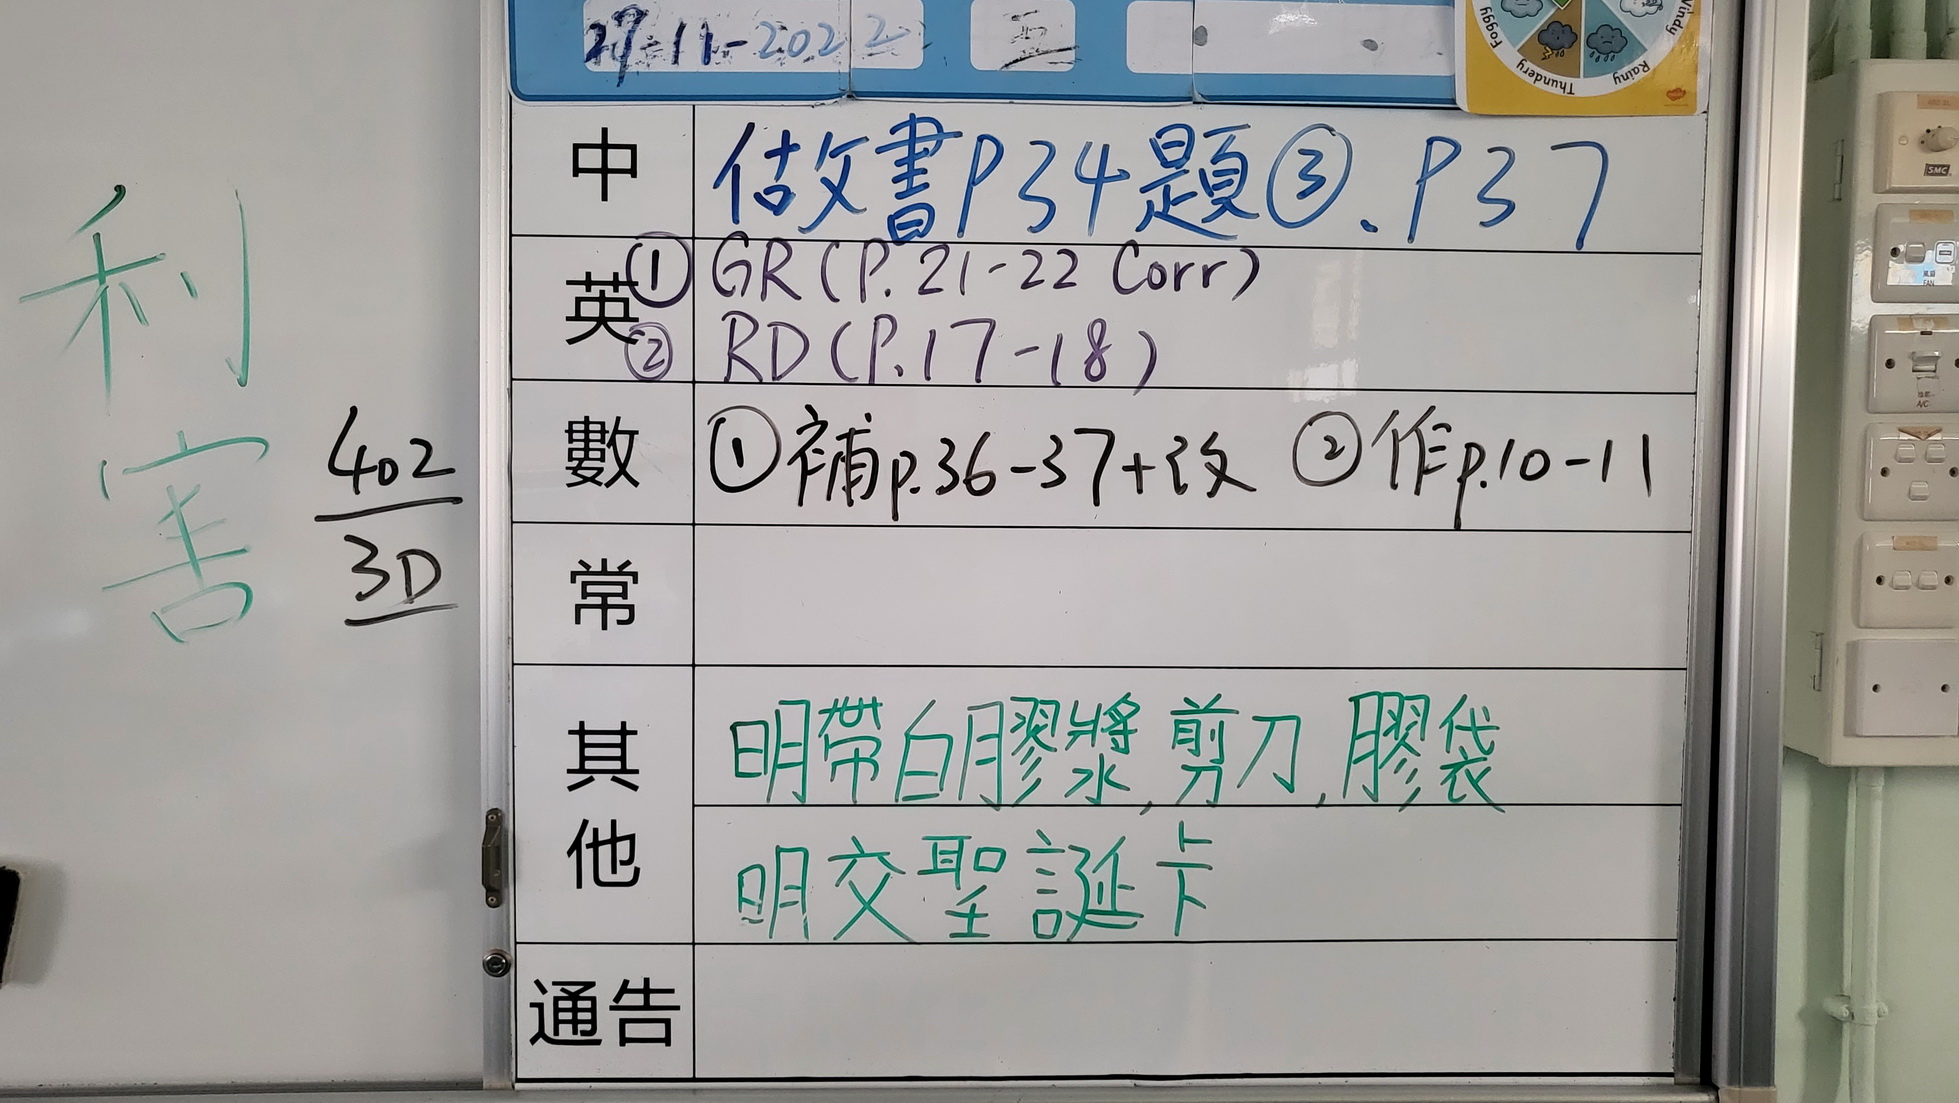 利
害
402
3D
2022
五
Foggy
Thundery
Rainy
Windy
中
做文書P34題③、P37
英
① GR (P. 21-22 Corr)
② RD (P. 17-18)
數
①補p.36-37+改 ②作p.10-11
常
其他
明帶白膠漿,剪刀,膠袋
明交聖誕卡
通告
SMC
FAN
A/C